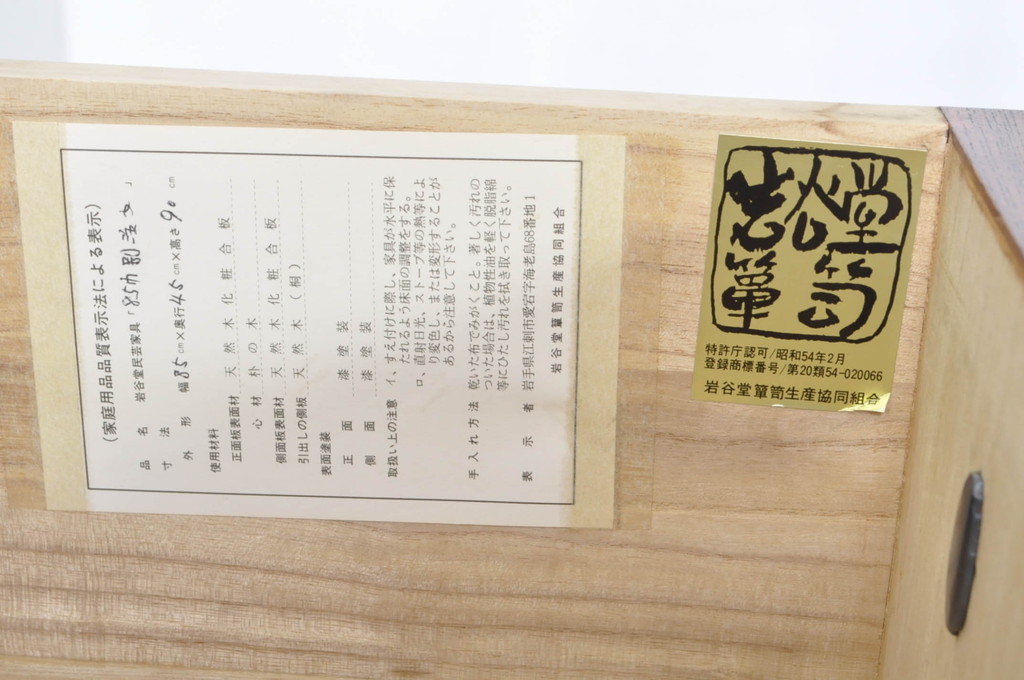 (家庭用品品質表示法による表示)
品名 岩谷堂民芸家具「85巾別当タ」
寸法
外形 幅85cm×奥行45cm×高さ90cm
使用材料
正面板表面材 天然木化粧合板
心材 朴の木
側面板表面材 天然木化粧合板
引出しの側板 天然木(桐)
表面塗装
正面 漆塗装
側面 漆塗装
取扱い上の注意 イ、すえ付けに際し、家具が水平に保
たれるよう床面の調整をする。
ロ、直射日光、ストーブ等の熱等によ
り変色し、または変形することが
あるから注意して下さい。
手入れ方法 乾いた布でみがくこと。著しく汚れの
ついた場合は、植物性油を軽く脱脂綿
等にひたし汚れを拭き取って下さい。
表示者 岩手県江刺市愛宕字海老島68番地1
岩谷堂簞笥生産協同組合
岩谷堂
簞笥
特許庁認可/昭和54年2月
登録商標番号/第20類54-020066
岩谷堂簞笥生産協同組合